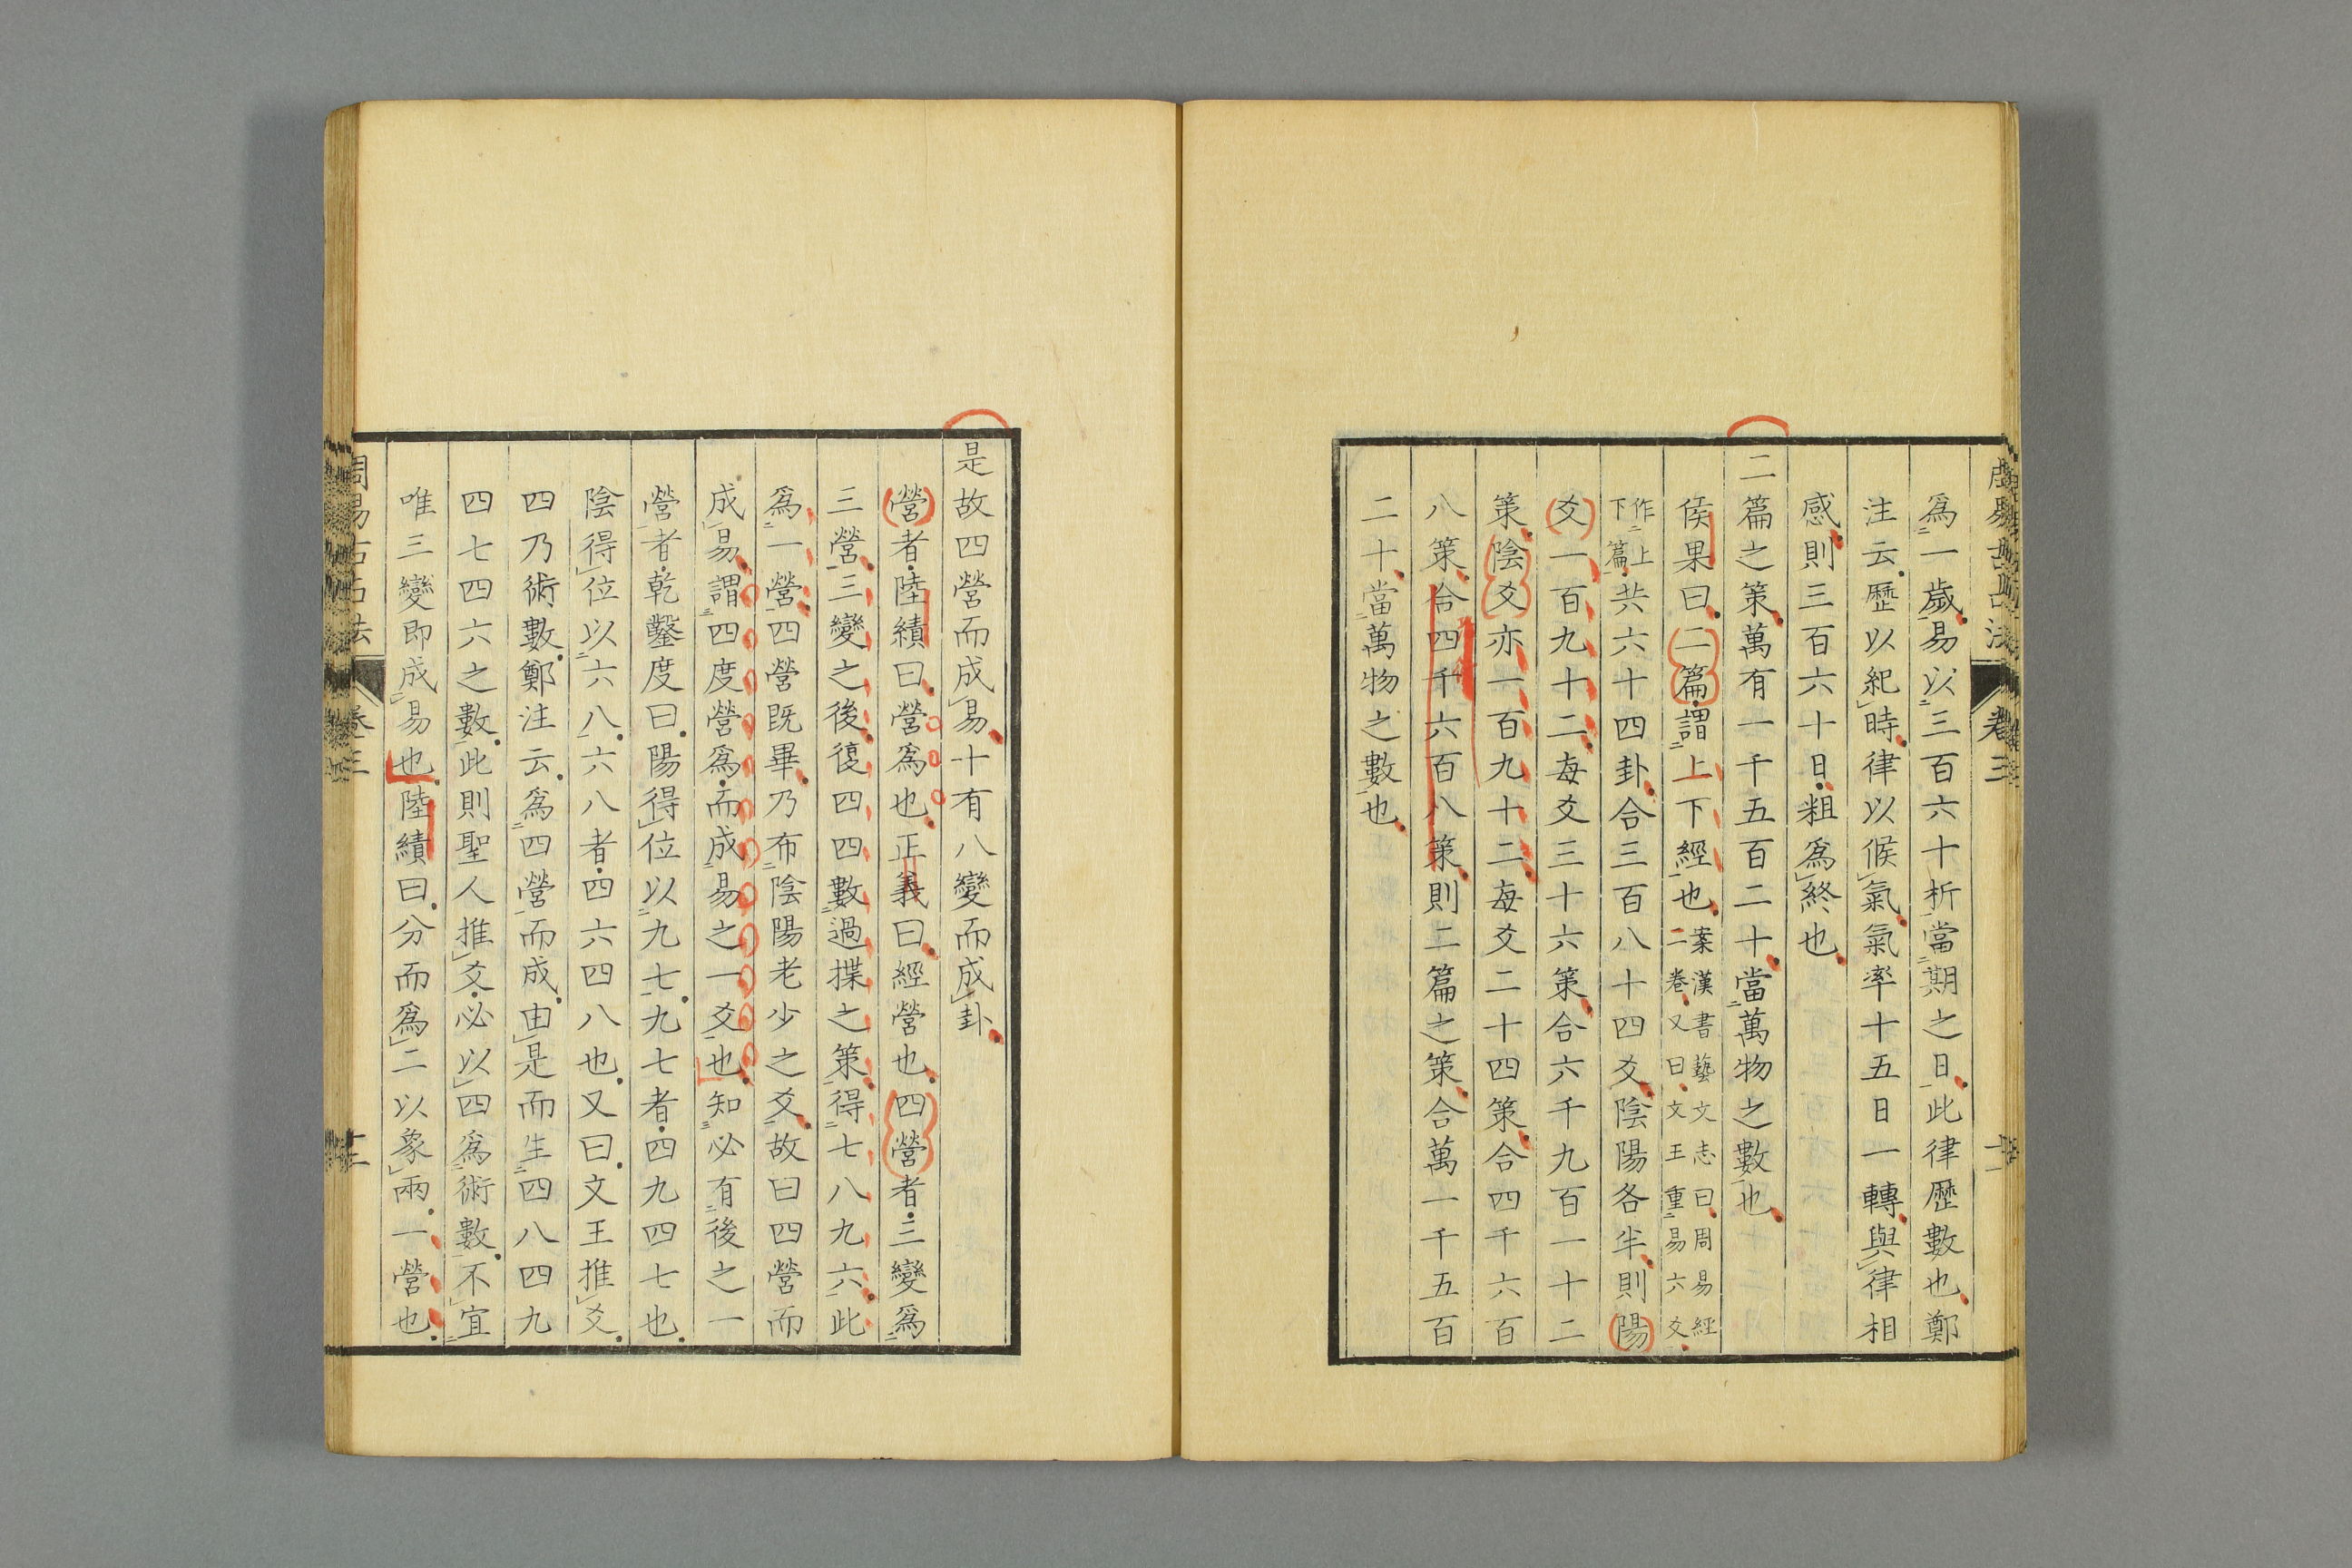 爲一歲易以三百六十析當期之日此律歷數也鄭
注云歷以紀時律以候氣氣率十五日一轉與律相
感則三百六十日粗爲終也
二篇之策萬有一千五百二十當萬物之數也
侯果曰二篇謂上下經也案漢書藝文志曰周易經
二卷又曰文王重易六爻
作上
下篇共六十四卦合三百八十四爻陰陽各半則陽
爻一百九十二每爻三十六策合六千九百一十二
策陰爻亦一百九十二每爻二十四策合四千六百
八策合四千六百八策則二篇之策合萬一千五百
二十當萬物之數也
卷三
是故四營而成易十有八變而成卦
營者陸績曰營爲也正義曰經營也四營者三變爲
三營三變之後復四四數過揲之策得七八九六此
爲一營四營既畢乃布陰陽老少之爻故曰四營而
成易謂四度營爲而成易之一爻也知必有後之一
營者乾鑿度曰陽得位以九七九七者四九四七也
陰得位以六八六八者四六四八也又曰文王推爻
四乃術數鄭注云爲四營而成由是而生四八四九
四七四六之數此則聖人推爻必以四爲術數不宜
唯三變即成易也陸績曰分而爲二以象兩一營也
周易古占法 卷三